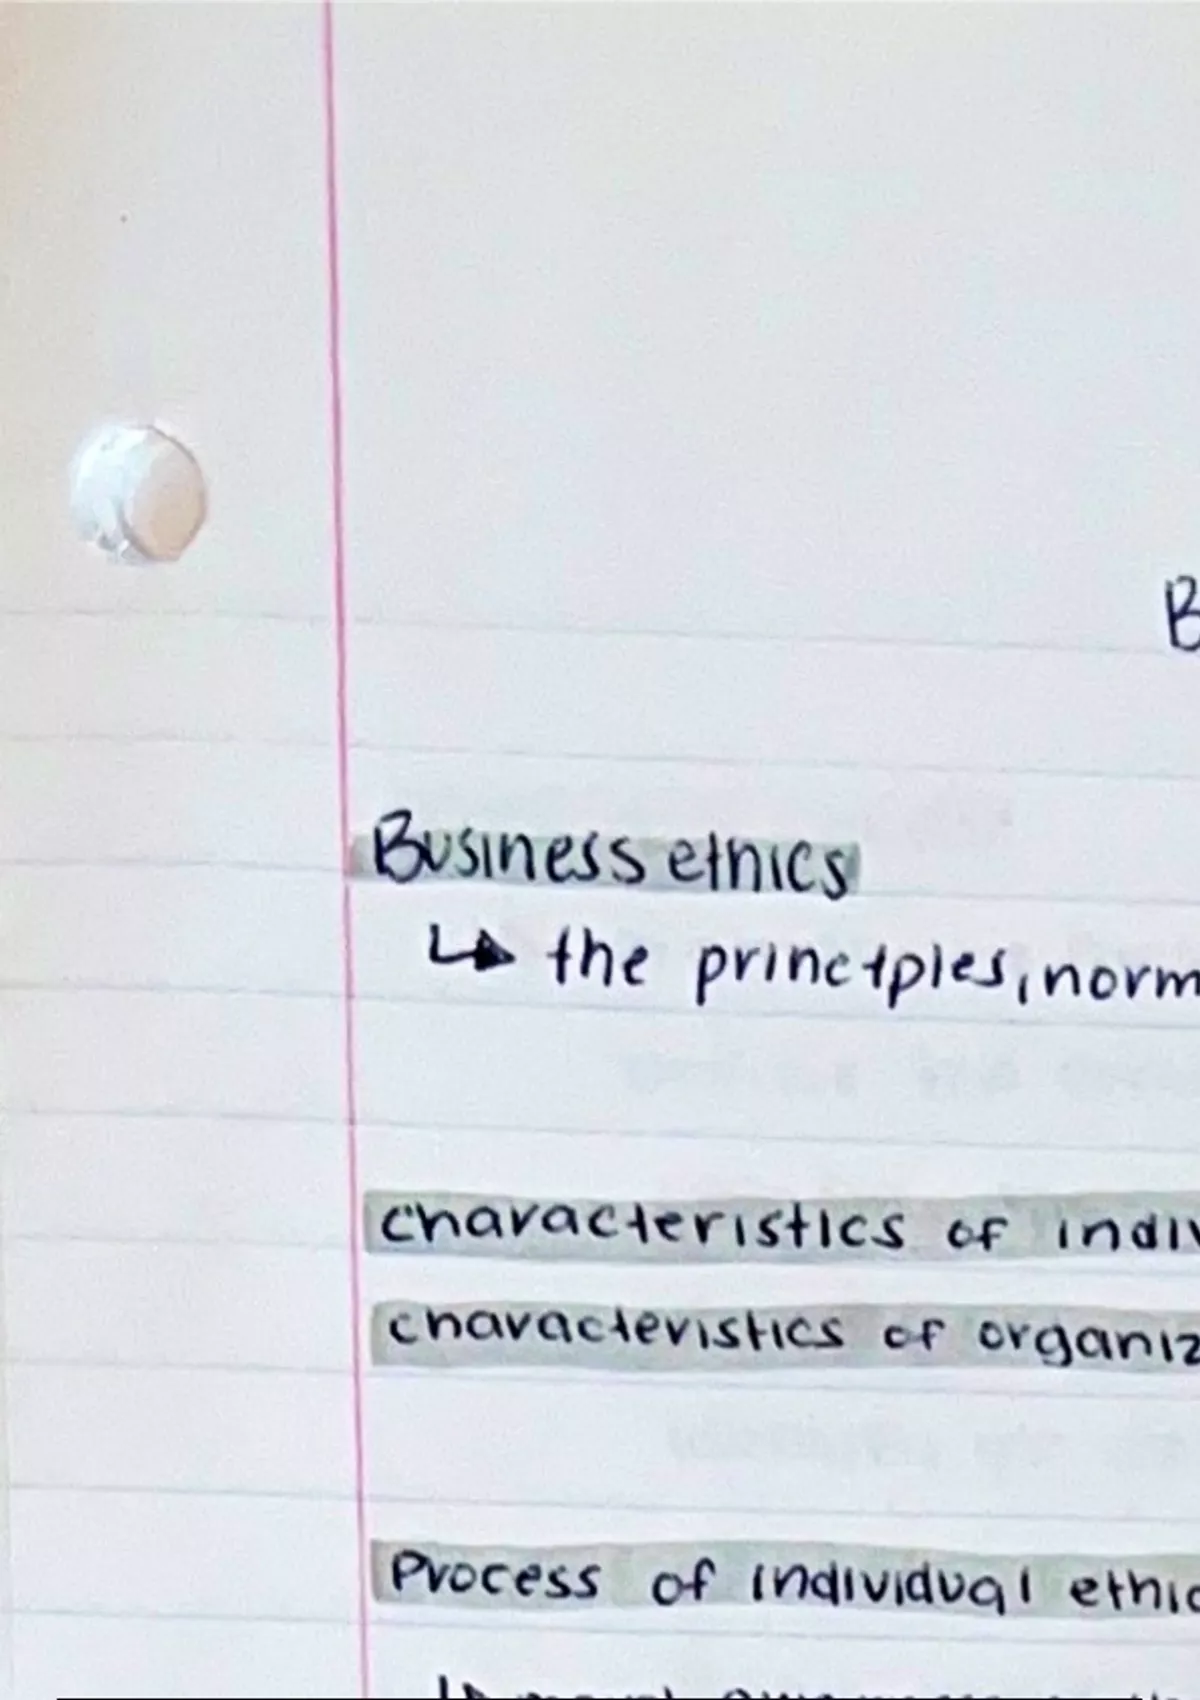 B
Business ethics
↳ the principles, norm
characteristics of indiv
characteristics of organiz
Process of individual ethic
↳ moral awareness